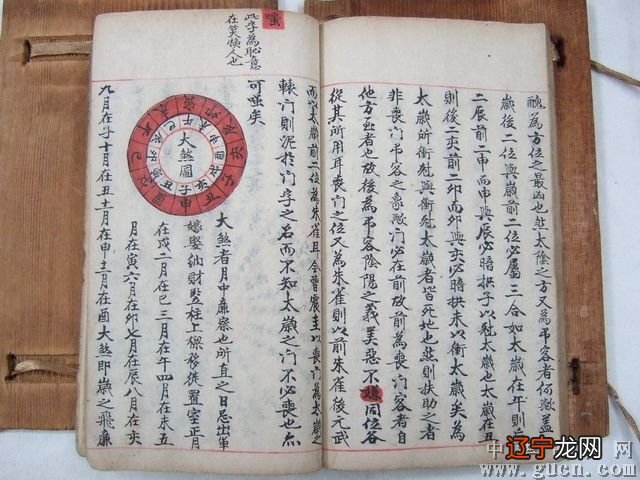 醜為方位之最凶也然太陰之方又為弔客者何歟蓋
歲後二位與歲前二位必屬三合如太歲在午則后
二辰前二申而申與辰必暗拱子以對太歲也太歲在丑
則後二亥前二卯而卯與亥必暗拱未以衝太歲矣為
太歲所衝對與衝對太歲者皆死地也然則扶助之者
非喪门弔客之象歟门必在前故前為喪门客者自
他方至者也故後為弔客陰陽之義美惡不嫌同位各
從其所用耳喪门之位又為朱雀則以前朱雀後元武
而以太歲前二位為朱雀且今曹震圭以喪门為太歲之
轅门則泥於门字之名而不知太歲之门不必喪也亦
可嗤矣
嗤
此字為恥意
在笑傲人也
大煞圖
大煞者月中廉察也所直之日忌出軍
嫁娶納財豎柱上樑移徙置室正月
在戌二月在巳三月在午四月在未五
月在寅六月在卯七月在辰八月在亥
九月在子十月在丑十一月在申十二月在酉大煞即歲之飛廉
辽宁龙网
www.gucn.com